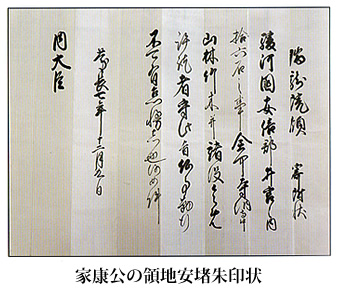 瑞龍院領 寄附状
駿河国安倍郡井宮之内
拾六石之事 全可寺納
山林竹木并諸役令免
許訖者守此旨勤行
不可有怠慢之如件
慶長七年十二月日
内大臣
家康公の領地安堵朱印状